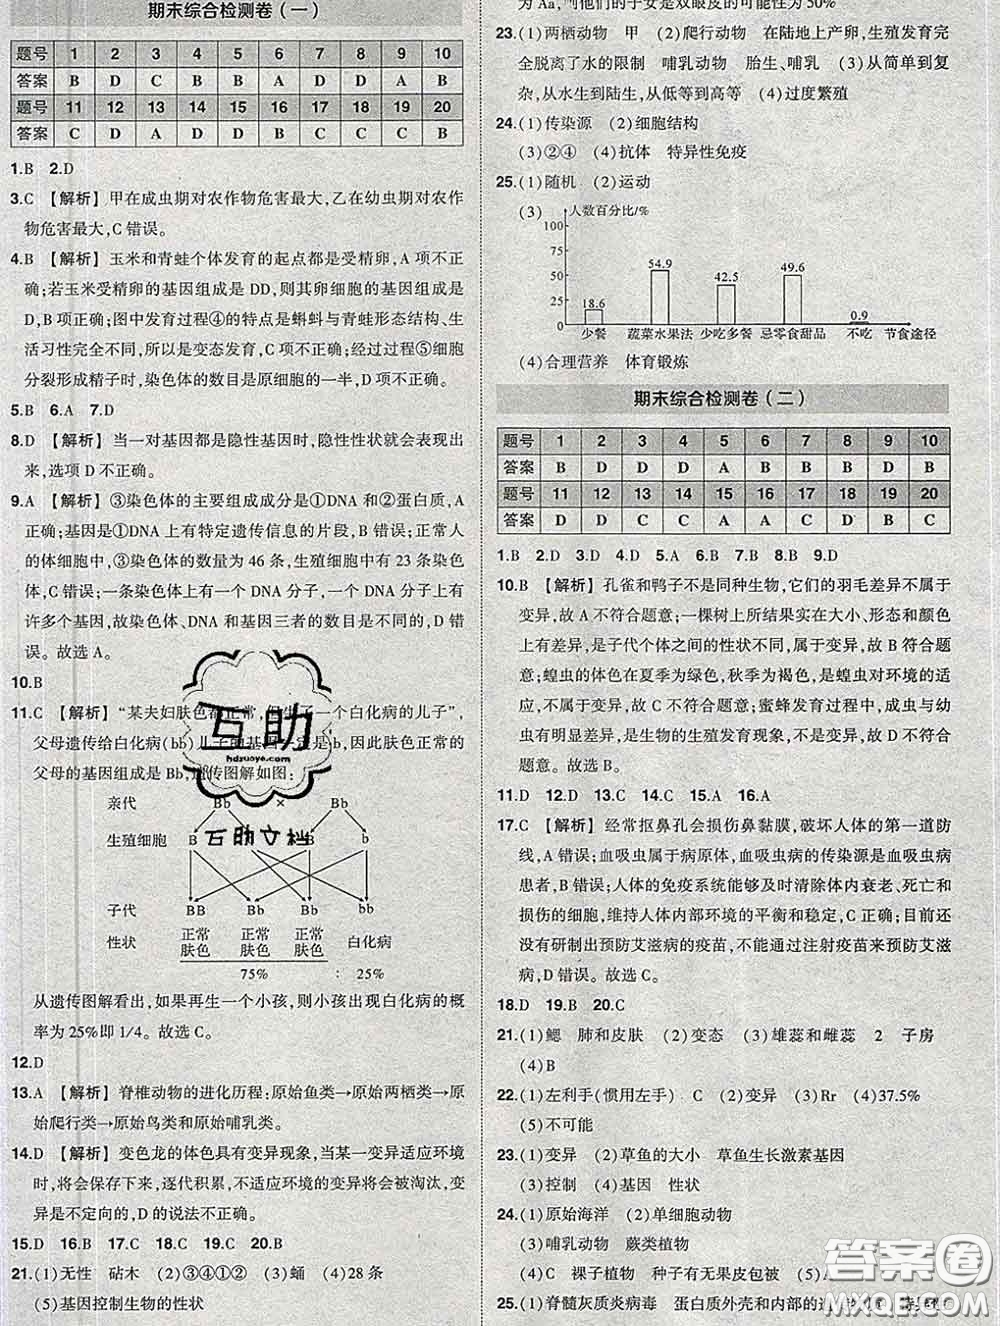 期末综合检测卷(一)
题号 1 2 3 4 5 6 7 8 9 10
答案 B D C B B A D D A B
题号 11 12 13 14 15 16 17 18 19 20
答案 C D A D D B C C C B
1.B 2.D
3.C 【解析】甲在成虫期对农作物危害最大,乙在幼虫期对农作
物危害最大,C 错误。
4.B 【解析】玉米和青蛙个体发育的起点都是受精卵,A 项不正
确;若玉米受精卵的基因组成是 DD,则其卵细胞的基因组成是
D,B 项正确;图中发育过程④的特点是蝌蚪与青蛙形态结构、生
活习性完全不同,所以是变态发育,C 项不正确;经过过程⑤细胞
分裂形成精子时,染色体的数目是原细胞的一半,D 项不正确。
5.B 6.A 7.D
8.D 【解析】当一对基因都是隐性基因时,隐性性状就会表现出
来,选项 D 不正确。
9.A 【解析】③染色体的主要组成成分是①DNA 和②蛋白质,A
正确;基因是①DNA 上有特定遗传信息的片段,B 错误;正常人
的体细胞中,③染色体的数量为 46 条,生殖细胞中有 23 条染色
体,C 错误;一条染色体上有一个 DNA 分子,一个 DNA 分子上有
许多个基因,故染色体、DNA 和基因三者的数目是不同的,D 错
误。故选 A。
10.B
11.C 【解析】“某夫妇肤色都正常,但生了一个白化病的儿子”,
父母遗传给白化病(bb)儿子的基因一定是 b,因此肤色正常的
父母的基因组成是 Bb,遗传图解如图:
亲代 Bb × Bb
生殖细胞 B b B b
子代 BB Bb Bb bb
性状 正常肤色 正常肤色 正常肤色 白化病
75% : 25%
从遗传图解看出,如果再生一个小孩,则小孩出现白化病的概
率为 25%即 1/4。故选 C。
12.D
13.A 【解析】脊椎动物的进化历程:原始鱼类→原始两栖类→原
始爬行类→原始鸟类和原始哺乳类。
14.D 【解析】变色龙的体色具有变异现象,当某一变异适应环境
时,将会保存下来,逐代积累,不适应环境的变异将会被淘汰,变
异是不定向的,D 的说法不正确。
15.D 16.B 17.C 18.C 19.C 20.B
21.(1)无性 砧木 (2)③④①② (3)蛹 (4)28 条
(5)基因控制生物的性状
为 Aa,则他们的子女是双眼皮的可能性为 50%
23.(1)两栖动物 甲 (2)爬行动物 在陆地上产卵,生殖发育完
全脱离了水的限制 哺乳动物 胎生、哺乳 (3)从简单到复
杂,从水生到陆生,从低等到高等 (4)过度繁殖
24.(1)传染源 (2)细胞结构
(3)②④ (4)抗体 特异性免疫
25.(1)随机 (2)运动
(3) 人数百分比/%
100
75
50
25
0
18.6 54.9 42.5 49.6 0.9
少餐 蔬菜水果法 少吃多餐 忌零食甜品 不吃 节食途径
(4)合理营养 体育锻炼
期末综合检测卷(二)
题号 1 2 3 4 5 6 7 8 9 10
答案 B D D D A B B B D B
题号 11 12 13 14 15 16 17 18 19 20
答案 D D C C A A C D B C
1.B 2.D 3.D 4.D 5.A 6.B 7.B 8.B 9.D
10.B 【解析】孔雀和鸭子不是同种生物,它们的羽毛差异不属于
变异,故 A 不符合题意;一棵树上所结果实在大小、形态和颜色
上有差异,是子代个体之间的性状不同,属于变异,故 B 符合题
意;蝗虫的体色在夏季为绿色,秋季为褐色,是蝗虫对环境的适
应,不属于变异,故 C 不符合题意;蜜蜂发育过程中,成虫与幼
虫有明显差异,是生物的生殖发育现象,不是变异,故 D 不符合
题意。故选 B。
11.D 12.D 13.C 14.C 15.A 16.A
17.C 【解析】经常抠鼻孔会损伤鼻黏膜,破坏人体的第一道防
线,A 错误;血吸虫属于病原体,血吸虫病的传染源是血吸虫病
患者,B 错误;人体的免疫系统能够及时清除体内衰老、死亡和
损伤的细胞,维持人体内部环境的平衡和稳定,C 正确;目前还
没有研制出预防艾滋病的疫苗,不能通过注射疫苗来预防艾滋
病,D 错误。故选 C。
18.D 19.B 20.C
21.(1)鳃 肺和皮肤 (2)变态 (3)雄蕊和雌蕊 2 子房
(4)B
22.(1)左利手(惯用左手) C (2)变异 (3)Rr (4)37.5%
(5)不可能
23.(1)变异 (2)草鱼的大小 草鱼生长激素基因
(3)控制 (4)基因 性状
24.(1)原始海洋 (2)单细胞动物
(3)哺乳动物 蕨类植物
(4)C 裸子植物 种子有无果皮包被 (5)
25.(1)脊髓灰质炎病毒 蛋白质外壳和内部的遗传物质
互助
hdzuoye.com
互助文档
答案圈
MXQE.COM